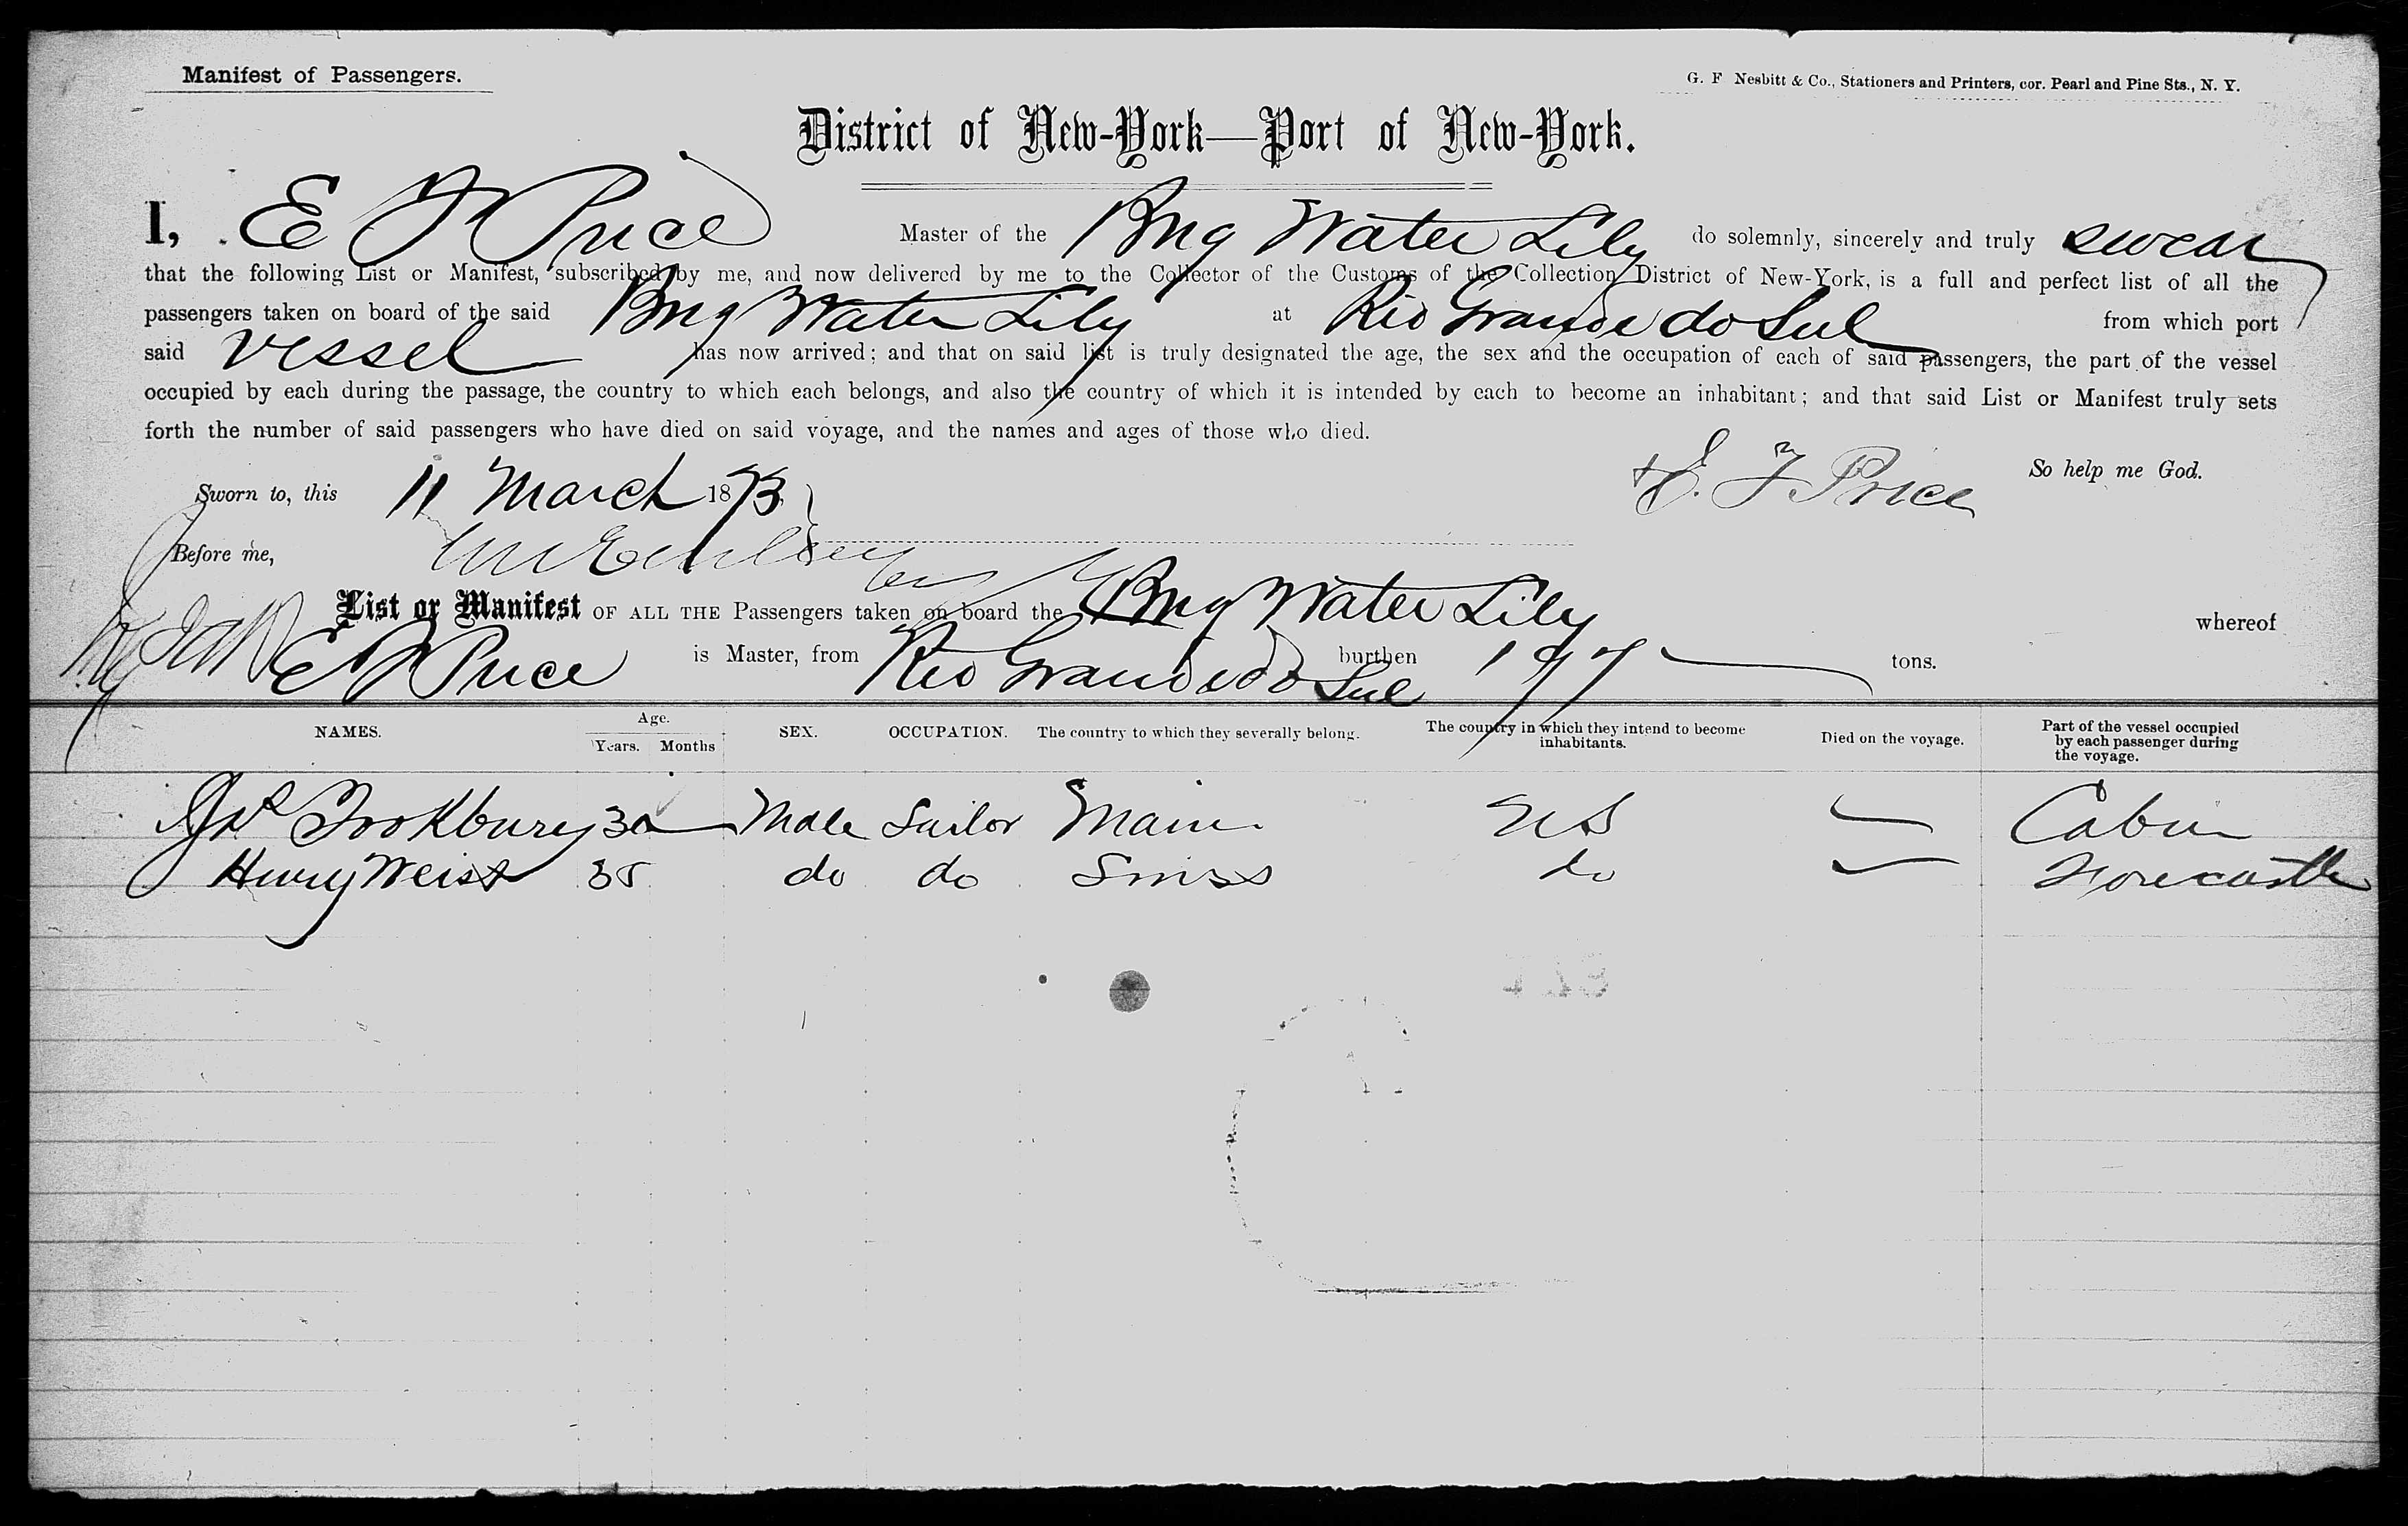 Manifest of Passengers.
G. F Nesbitt & Co., Stationers and Printers, cor. Pearl and Pine Sts., N. Y.
District of New-York—Port of New-York.
I, E F Price Master of the Brig Water Lily do solemnly, sincerely and truly swear
that the following List or Manifest, subscribed by me, and now delivered by me to the Collector of the Customs of the Collection District of New-York, is a full and perfect list of all the
passengers taken on board of the said Brig Water Lily at Rio Grande do Sul from which port
said vessel has now arrived; and that on said list is truly designated the age, the sex and the occupation of each of said passengers, the part of the vessel
occupied by each during the passage, the country to which each belongs, and also the country of which it is intended by each to become an inhabitant; and that said List or Manifest truly sets
forth the number of said passengers who have died on said voyage, and the names and ages of those who died.
So help me God.
Sworn to, this 11 March 1873 E. F Price
Before me,
List or Manifest OF ALL THE Passengers taken on board the Brig Water Lily whereof
E F Price is Master, from Rio Grande do Sul burthen 197 tons.
NAMES. Age. Years. Months SEX. OCCUPATION. The country to which they severally belong. The country in which they intend to become inhabitants. Died on the voyage. Part of the vessel occupied by each passenger during the voyage.
Jno Brookbury 30 Male Sailor Maine US Cabin
Henry Weist 35 do do Swiss do Forecastle